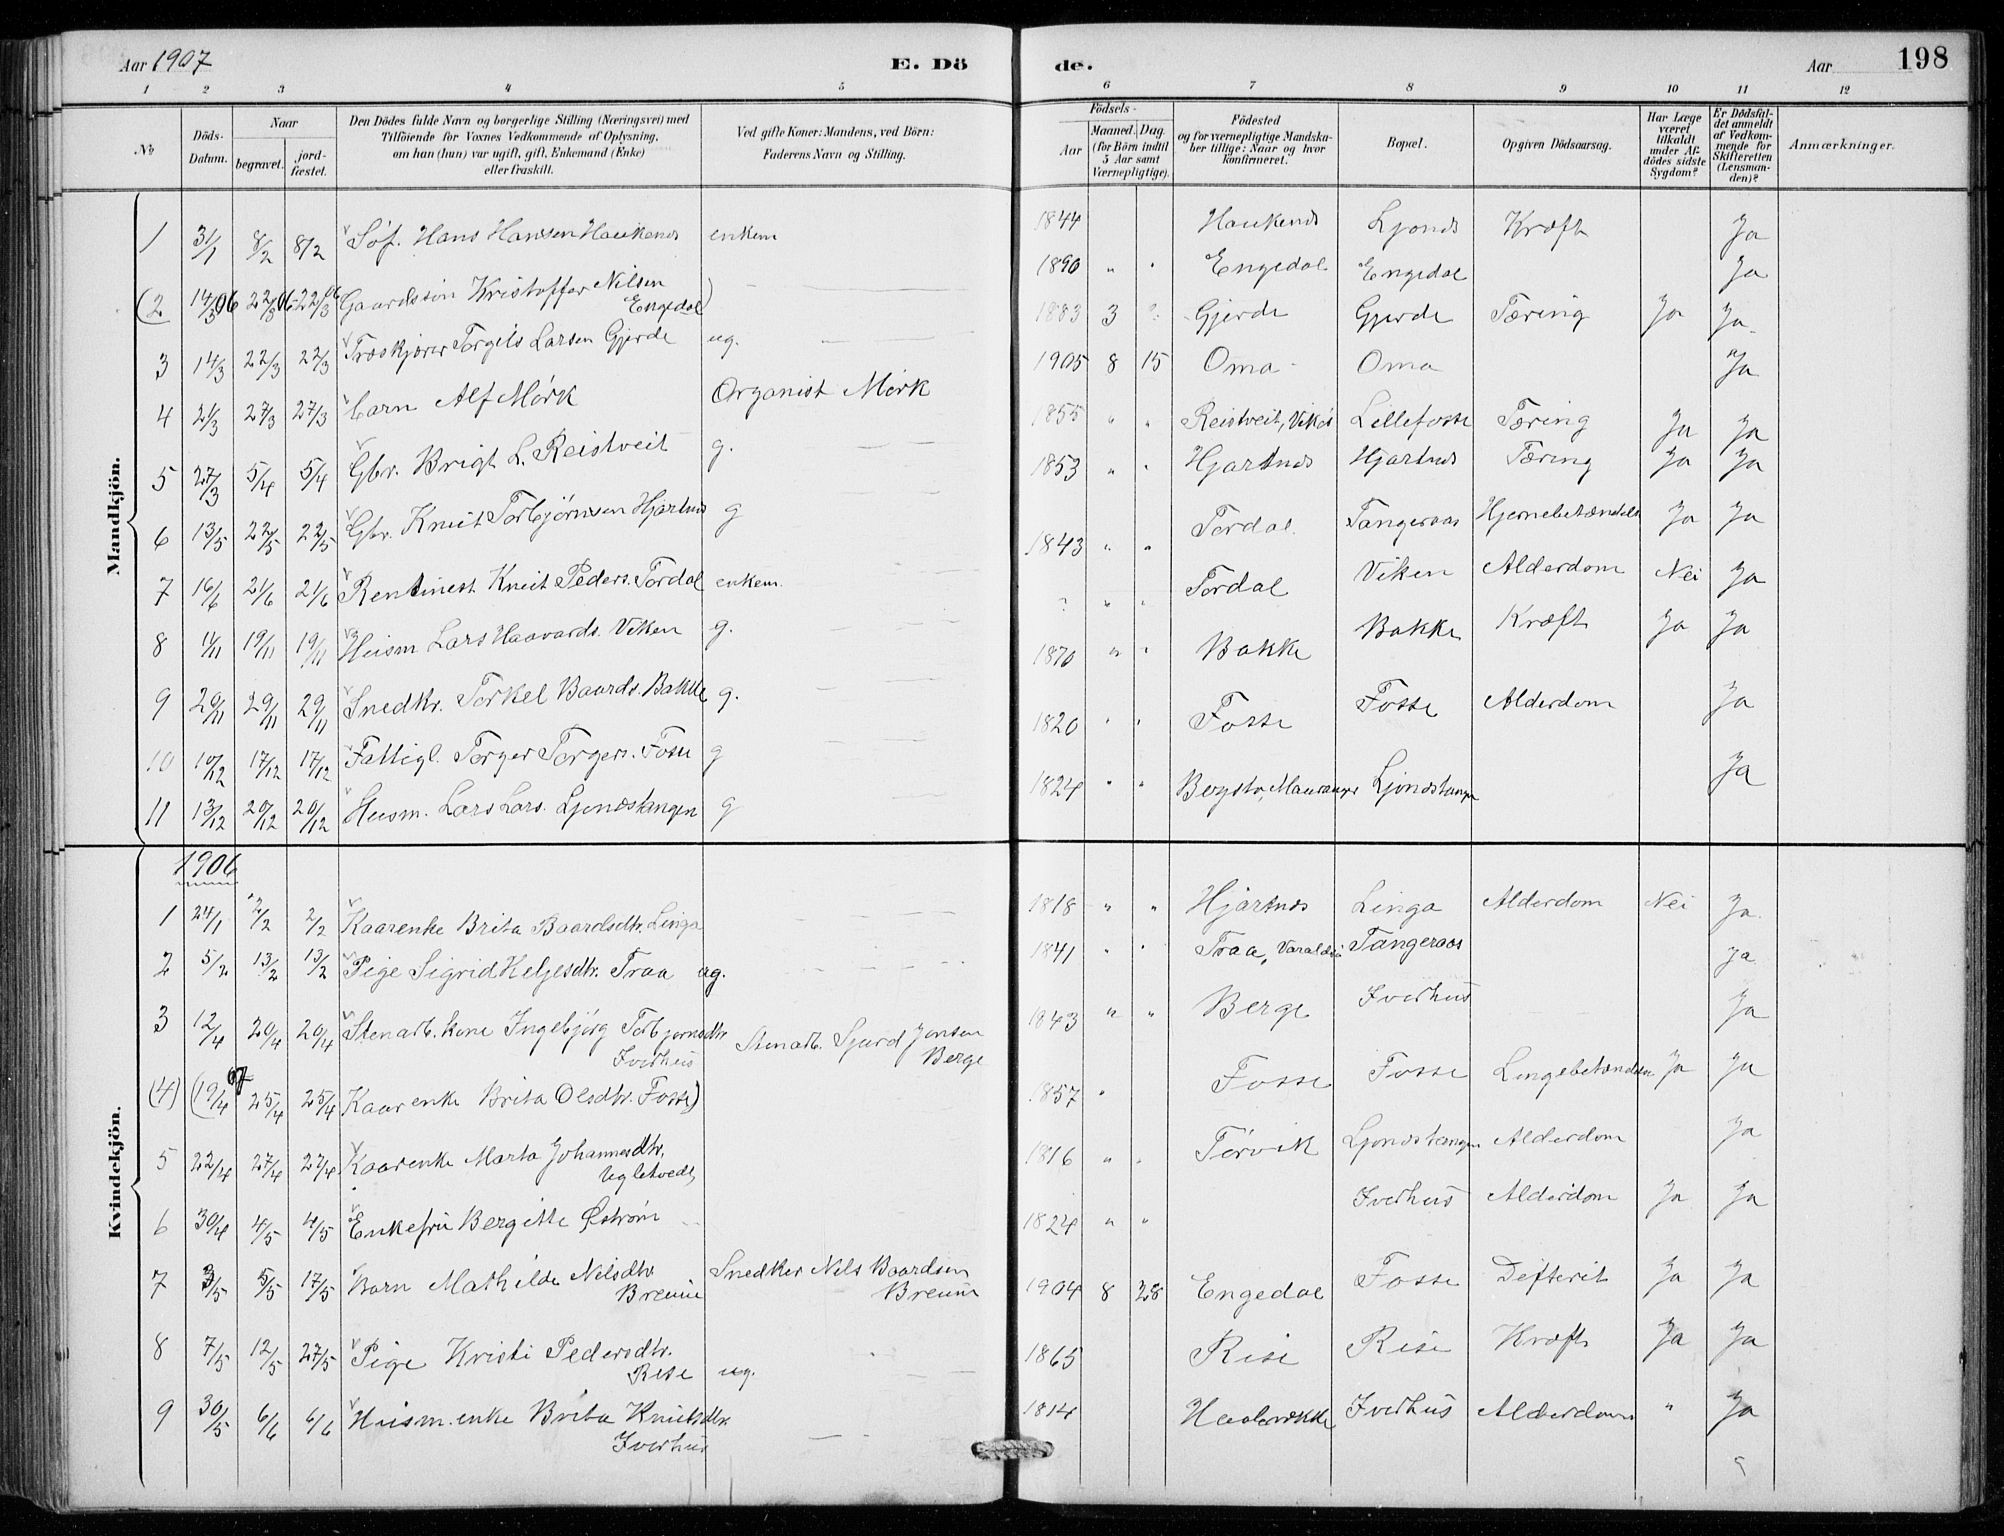 Aar 1907 E. Dö de. Aar 198
1 2 3 4 5 6 7 8 9 10 11 12
No
Döds-Datum.
Naar
begravet.
jord-fæstet.
Den Dödes fulde Navn og borgerlige Stilling (Næringsvei) med
Tilföiende for Voxnes Vedkommende af Oplysning,
om han (hun) var ugift, gift, Enkemand (Enke)
eller fraskilt.
Ved gifte Koner: Mandens, ved Börn:
Faderens Navn og Stilling.
Födsels-
Aar
Maaned. Dag.
(for Börn indtil
5 Aar samt
Værnepligtige).
Födested
og for værnepligtige Mandska-
ber tillige: Naar og hvor
konfirmeret.
Bopæl.
Opgiven Dödsaarsag.
Har Læge
været
tilkaldt
under Af-
dödes sidste
Sygdom?
Er Dödsfal-
det anmeldt
af Vedkom-
mende for
Skifteretten
(Lensman-
den)?
Anmærkninger.
Mandkjön.
1 31/1 8/2 8/2 Søf. Hans Hansen Haukenes enkem 1844 Haukenes Ljones Kræft Ja
(2 14/3 06 22/3 06 22/3 06 Gaardssøn Kristoffer Nilsen Engedal) 1890 " " Engedal Engedal Ja
3 14/3 22/3 22/3 Træskjærer Torgils Larsen Gjerde ug. 1883 3 Gjerde Gjerde Tæring Ja Ja
4 21/3 27/3 27/3 Barn Alf Mørk Organist Mørk 1905 8 15 Oma Oma Ja
5 27/3 5/4 5/4 Gbr. Brigt L. Reistveit g. 1855 " " Reistveit, Vikøs Lillefosse Tæring Ja Ja
6 13/5 22/5 22/5 Gbr. Knut Torbjørnsen Hjartnes g 1853 " " Hjartnes Hjartnes Tæring Ja Ja
7 16/6 21/6 21/6 Rentinest Knut Peders. Tordal enkem. 1843 " " Tordal Tangeraas Hjernebetændels Ja Ja
8 11/11 19/11 19/11 Husm Lars Haavards. Viken g. ? " " Tordal Viken Alderdom Nei Ja
9 20/11 29/11 29/11 Snedkr. Torkel Baards. Bakke g. 1870 " " Bakke Bakke Kræft Ja Ja
10 10/12 17/12 17/12 Fattigl. Torger Torgers. Fosse g 1820 " " Fosse Fosse Alderdom Ja
11 13/12 20/12 20/12 Husm. Lars Lars. Ljonestangen g 1824 " " Bergstø, Mauranger Ljonestangen Ja
Kvindekjön.
1906
1 24/1 2/2 2/2 Kaarenke Brita Baardsdtr. Linga 1818 " " Hjartnes Linga Alderdom Nei Ja
2 5/2 13/2 13/2 Pige Sigrid Heljesdtr. Traa ug. 1841 " " Traa, Varaldsø Tangeraas Ja
3 12/4 20/4 20/4 Stenarb. kone Ingebjørg Torbjørnsdtr. Iverhus Stenarb. Sjurd Jonsen Berge 1843 " " Berge Iverhus Ja
(4) (19/4 07 25/4 25/4 Kaarenke Brita Olsdtr. Fosse) 1857 " Fosse Fosse Lungebetændelse Ja Ja
5 22/4 27/4 27/4 Kaarenke Marta Johannesdtr. Ugletvedt 1816 " " Tørvik Ljonestangen Alderdom Ja
6 30/4 4/5 4/5 Enkefru Bergitte Østrøm 1824 " " Iverhus Alderdom Ja Ja
7 3/5 5/5 17/5 Barn Mathilde Nelsdtr Breum Snedker Nels Baardsen Breum 1904 8 28 Engedal Fosse Difterit Ja Ja
8 7/5 12/5 27/5 Pige Kristi Pedersdtr. Rise ug. 1865 Rise Rise Kræft Ja Ja
9 30/5 6/6 6/6 Husm. enke Brita Knutsdtr. Iverhus 1814 Iverhus Alderdom " Ja